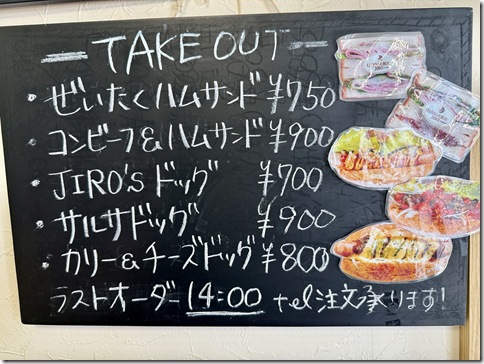 TAKE OUT
・ぜいたくハムサンド ¥750
・コンビーフ&ハムサンド ¥900
・JIRO'S ドッグ ¥700
・サルサドッグ ¥900
・カリー&チーズドッグ ¥800
ラストオーダー 14:00 tel注文承ります!